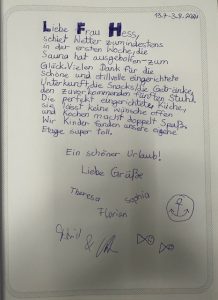 13.7-3.8.2021
Liebe Frau Hess,
schiet Wetter zumindestens
in der ersten Woche, die
Sauna hat ausgeholfen - zum
Glück. Vielen Dank für die
schöne und stilvolle eingerichtete
Unterkunft, die Snacks/die Getränke,
den zuvorkommenden fünften Stuhl.
Die perfekt eingerichtete Küche,
sie lässt keine Wünsche offen
und Kochen macht doppelt Spaß.
Wir Kinder fanden unsere eigene
Etage super toll.
Ein schöner Urlaub!
Liebe Grüße
Theresa Sophia
Florian
&